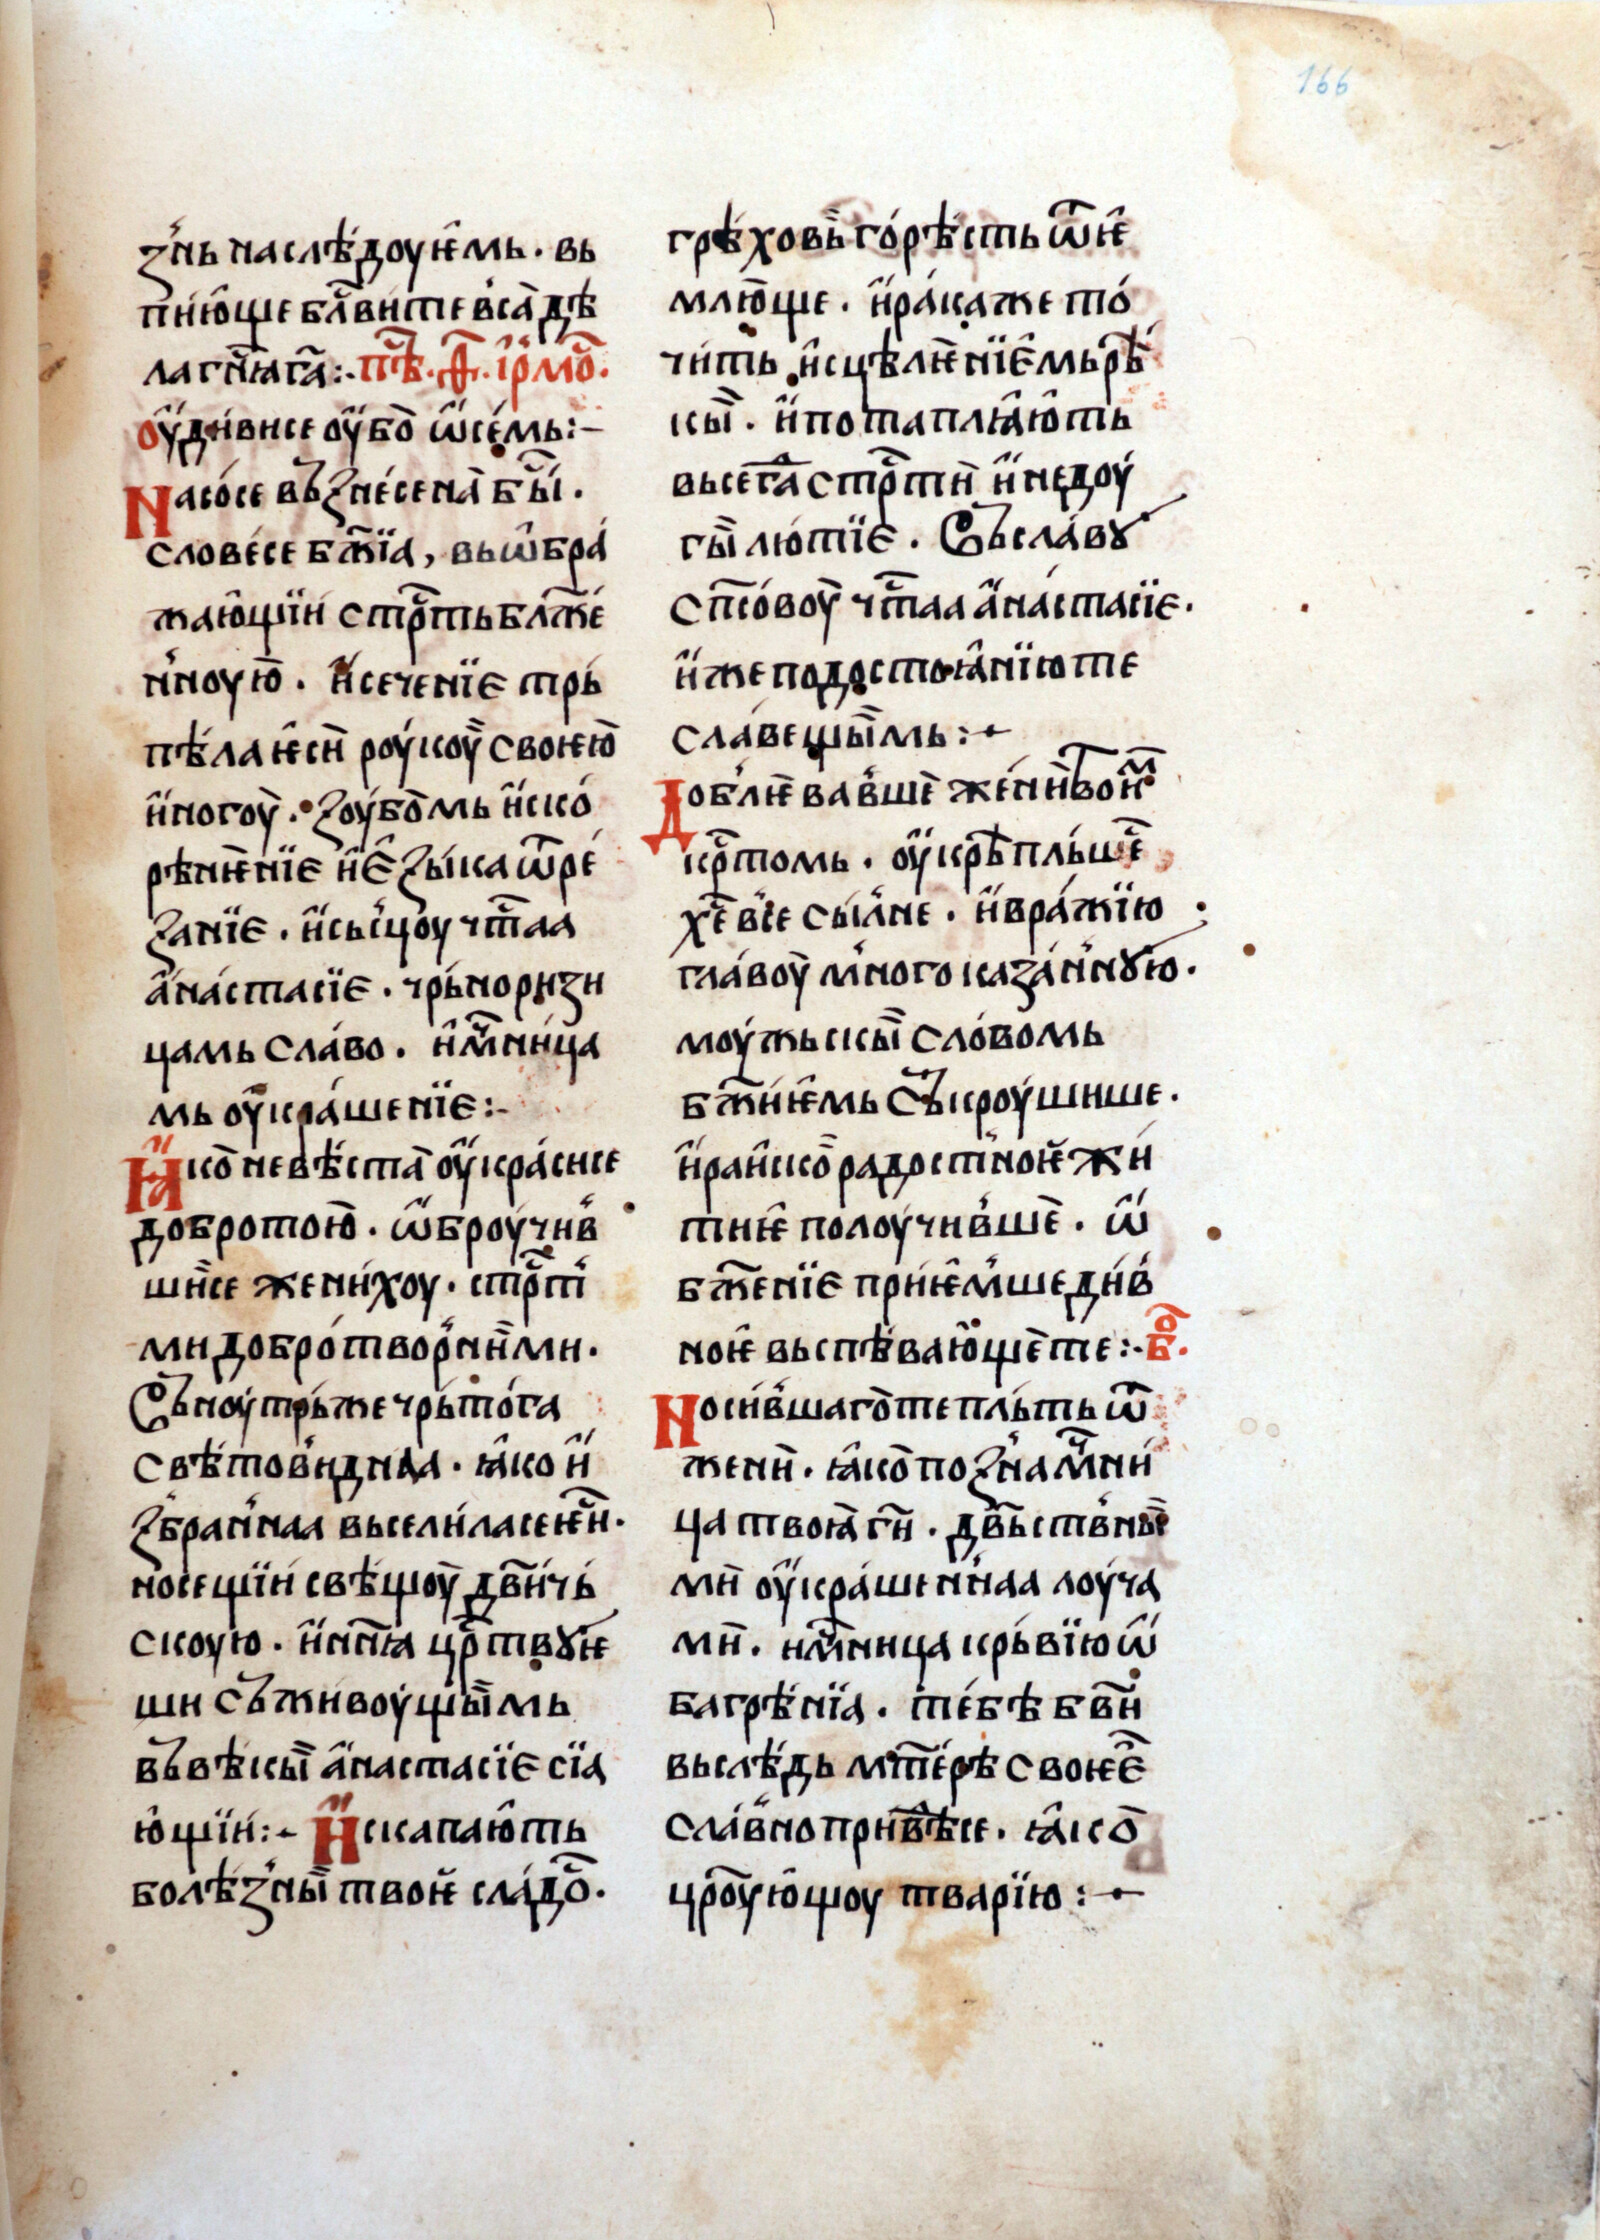 166
з̾нь наслѣ́доуѥ̂мь · вь
пи́ю̂ще бл҃ви́те в̾са̀ дѣ
ла гн҃ꙗ га҃ :· пѣ҃ · ѳ҃ · і̂рмо҃ ·
ѹ҆ди́висе ѹ҆бо̀ ѡ҆ се́мь :–
На со́се въ́знесена̀ бы҃ ·
словесе б҃жїа , вьѡ̂бра́
жаю̂щїи стр҃ть бл҃же́
н̾ноую̀ · и҆ сеченїе трь́
пѣ́ла ѥ̂сѝ роукоу̀ своѥю̀
и҆ ногоу̀ · зоубо́мь и҆ско́
рѣнѥ́нїе и҆ ѥ̂зы́ка ѿре́
занїе · и҆ сьс̾цоу чт҃аа
а҆на́стасїе · чрь́норизи
цамь сла́во · и҆ мч҃ни́ца
мь ѹ҆кра́шенїе :–
Ꙗ҆ко̀ невѣ́ста̀ ѹ҆кра́снсе
добротою̀ · ѡ҆броучив̾
ши́се жени́хоу · стр҃т̾
ми добро́твор̾ны̀ми ·
Съ́ноутрь́же чрьто́га
свѣ́тов̾идная · ꙗ̂ко и҆
з̾бран̾наа вьсели́ласе ѥ̂сѝ ·
но́сещїи свѣ́щоу̀ дв҃и́чь
скоую · и҆ нн҃ꙗ цр҃твꙋѥ
ши съ́ живоу́щы̀мь
въ́ вѣ́кы̀ а҆на́стасїе сїа
ю̂щїи :– И҆скапаю̂ть
болѣ́з̾ны̀ твоѥ сладо҃ ·
грѣ́ховь̀ го́рѣсть ѿѥ̂
млю̀ще · и҆ ра́ка же то́
чи́ть и̂сцѣлѥ́нїе̂мь рѣ́
кы̀ · и҆ потаплꙗ̂ю̂ть
вьсегда̀ стр҃тѝ и҆ недоу́
гы̀ лю́тїе · Съ́ сла́вꙋ
сп҃со́воу̀ чт҃аа а҆на́стасїе ·
и҆же подостоꙗ̂нїю те
сла́вещы̀мь :–
Доб̾лѥвав̾шѐ же́нѝ воѥ̂м҃
кр҃томь · ѹ҆крѣ́пль́ше҃
х҃е в̾се сы́л̾не · и҆ вра́жїю
гла́воу̀ м̾ного каза́н̾нꙋю ·
моужьскы̀ сло́вомь
бж҃иѥ̂мь Съ́кроушише ·
и҆ рай́ско̀ радост̾ноѥ жи́
тиѥ̂ полоучи́в̾шѐ · ѡ҆
бж҃енїе приѥ̂м̾ше ди́в̾
ноѥ̂ вьспѣ́ваю̂щѐ те :– бо҃ ·
Носи́в̾шаго̀ те пль́ть ѿ
женѝ · ꙗ̂ко̀ поз̾на мч҃ни́
ца твоꙗ̀ гѝ · двь҃ств̾ны̀
мѝ ѹ҆кра́шен̾наа лоуча
мѝ · и мч҃ница крь́вїю ѡ҆
багрѣ́нїа · те́бѣ бв҃и
вьслѣ́дь мт҃е́рѣ своѥе̂
сла́в̾но привѣ́се · ꙗ̂ко̀
цр҃оую̂щоу тварїю :–